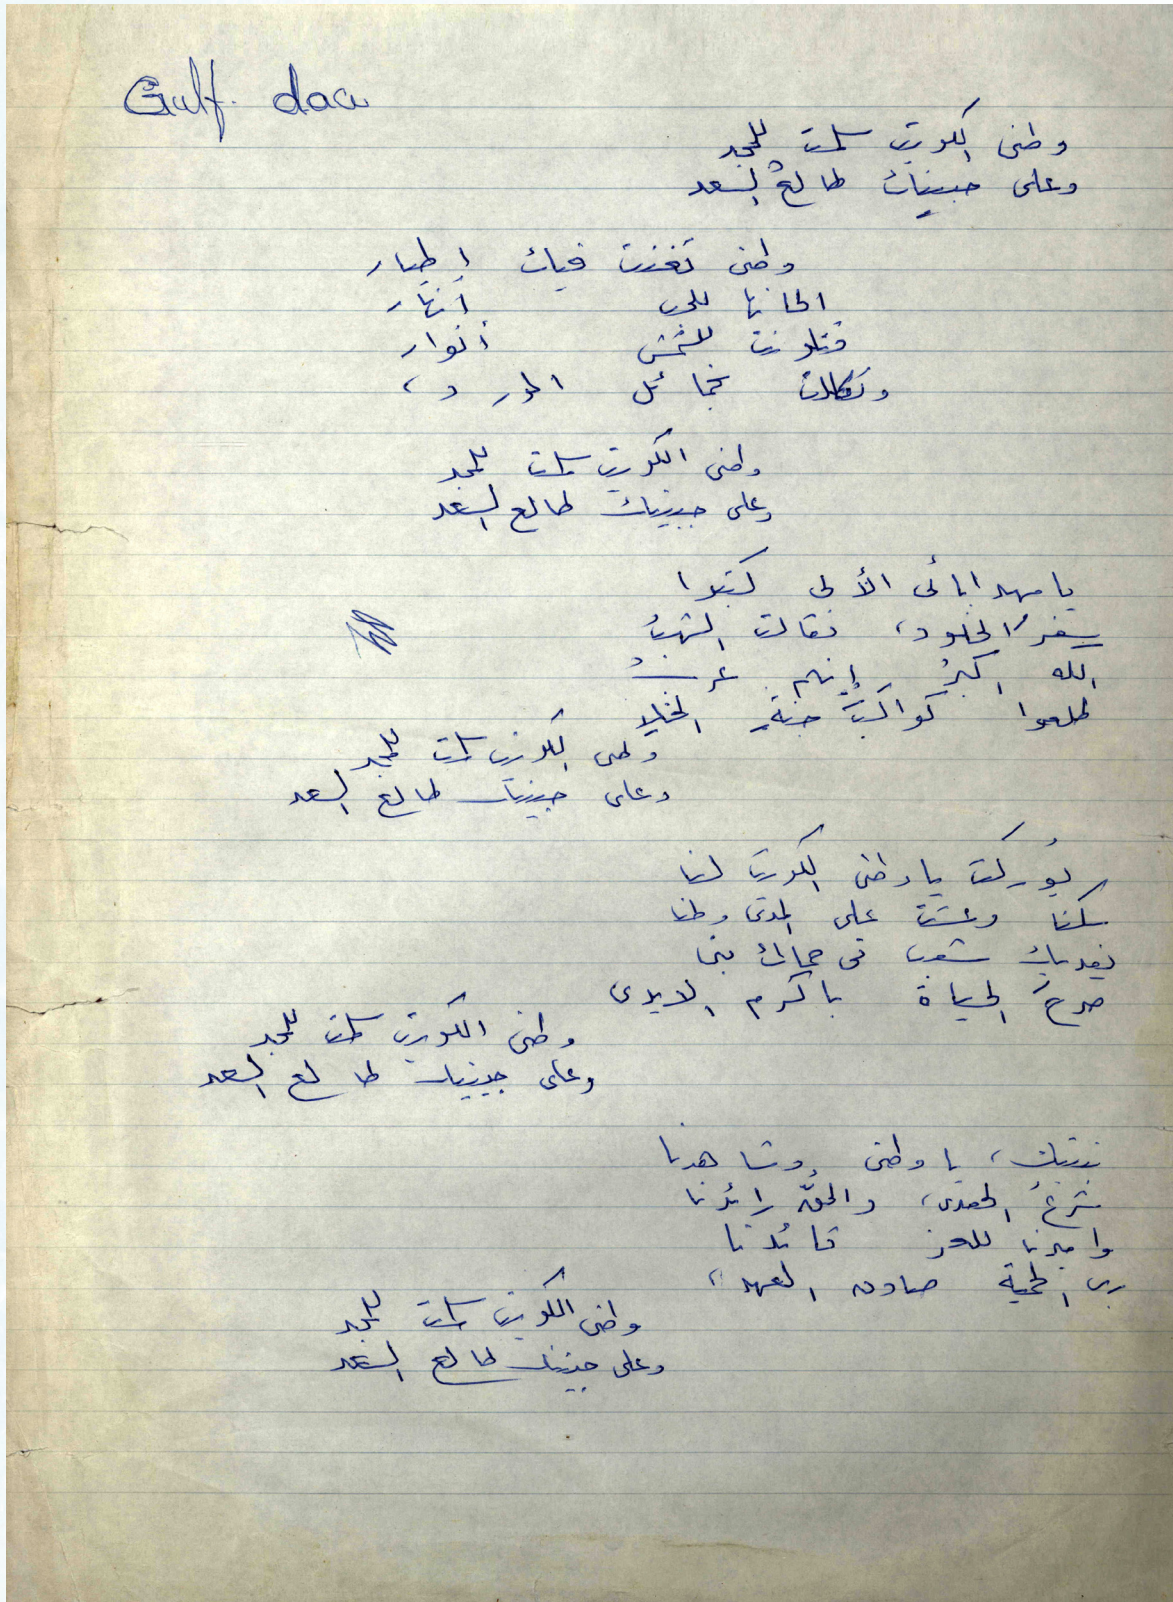 Gulf. daw
وطني الكويت سلمت للمجد
وعلى جبينك طالعُ السعد
وطني تغنت فيك اطيار
الحانها للحب أنهار
فتلونت للشمس أنوار
وتكللت بخمائل الورد،
وطني الكويت سلمت للمجد
وعلى جبينك طالع السعد
يا مهد ابائي الألى كتبوا
سِفرَ الخلود، فقالت الشهبُ
الله اكبرُ إنهم عربُ
طلعوا كواكبَ جنةِ الخلدِ
وطني الكويت سلمت للمجد
وعلى جبينك طالع السعد
بُوركت يا وطني الكويت لنا
سكنا وعشت على المدى وطنا
يفديك شعب في حماك بنى
صرحَ الحياة باكرم الايدي
وطني الكويت سلمت للمجد
وعلى جبينك طالع السعد
نبنيك، يا وطني وشاهدنا
شرعُ الهدى، والحقُّ رائدنا
واميرنا للعز قائدنا
رب الحمية صادق العهد،
وطني الكويت سلمت للمجد
وعلى جبينك طالع السعد